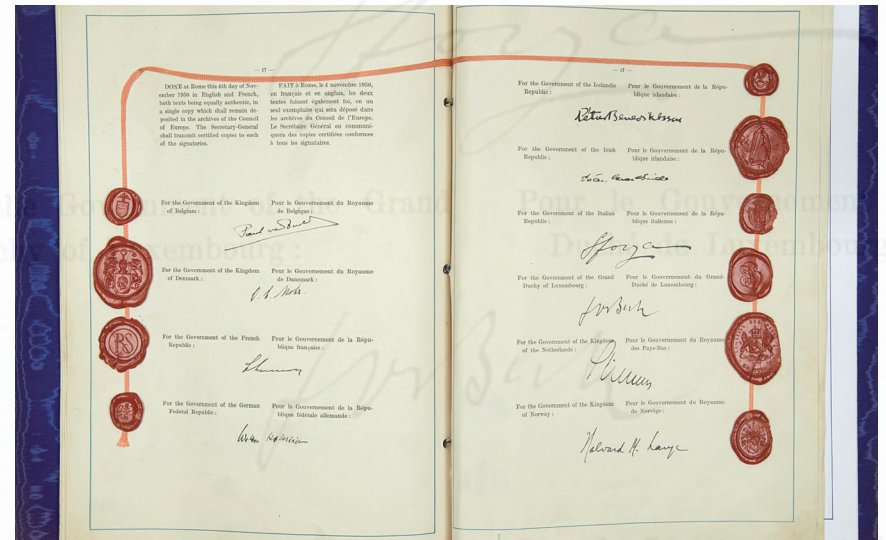 — 17 —
DONE at Rome this 4th day of Nov-
ember 1950 in English and French,
both texts being equally authentic, in
a single copy which shall remain de-
posited in the archives of the Council
of Europe. The Secretary-General
shall transmit certified copies to each
of the signatories.
FAIT à Rome, le 4 novembre 1950,
en français et en anglais, les deux
textes faisant également foi, en un
seul exemplaire qui sera déposé dans
les archives du Conseil de l'Europe.
Le Secrétaire Général en communi-
quera des copies certifiées conformes
à tous les signataires.
For the Government of the Kingdom
of Belgium :
Pour le Gouvernement du Royaume
de Belgique :
For the Government of the Kingdom
of Denmark :
Pour le Gouvernement du Royaume
de Danemark :
O. C. Mohr.
For the Government of the French
Republic :
Pour le Gouvernement de la Répu-
blique française :
For the Government of the German
Federal Republic :
Pour le Gouvernement de la Répu-
blique fédérale allemande :
RS
For the Government of the Icelandic
Republic :
Pour le Gouvernement de la Répu-
blique islandaise :
For the Government of the Irish
Republic :
Pour le Gouvernement de la Répu-
blique irlandaise :
For the Government of the Italian
Republic :
Pour le Gouvernement de la Répu-
blique italienne :
Sforza
For the Government of the Grand
Duchy of Luxembourg :
Pour le Gouvernement du Grand-
Duché de Luxembourg :
Jos Bech
For the Government of the Kingdom
of the Netherlands :
Pour le Gouvernement du Royaume
des Pays-Bas :
For the Government of the Kingdom
of Norway :
Pour le Gouvernement du Royaume
de Norvège :
Halvard M. Lange